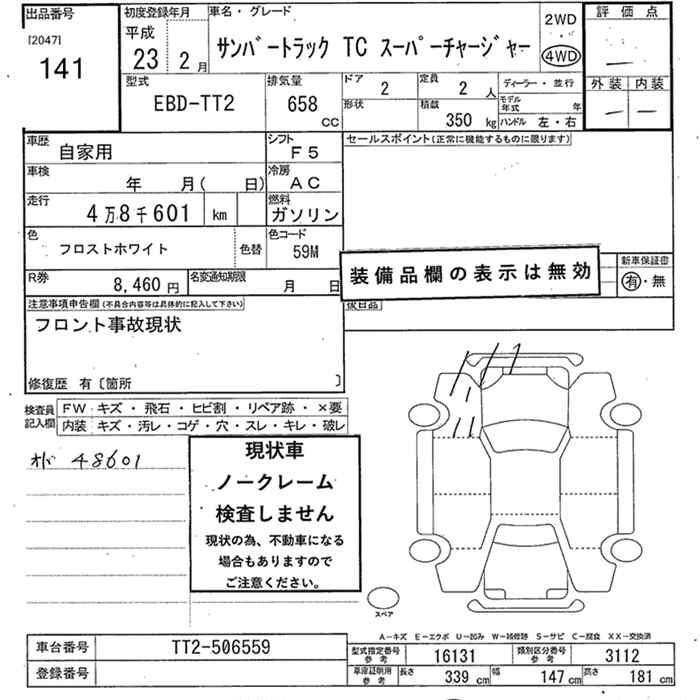 出品番号
[2047]
141
初度登録年月
平成
23 2 月
車名・グレード
サンバートラック TC スーパーチャージャー
2WD
4WD
評価点
—
外装 内装
— —
型式
EBD-TT2
排気量
658
CC
ドア
2
定員
2 人
ディーラー・並行
形状
積載
350 kg
モデル年式 年
ハンドル 左・右
車歴
自家用
シフト
F5
セールスポイント(正常に機能するものに限ります)
車検
年 月( 日)
冷房
AC
走行
4万8千601 km
燃料
ガソリン
色
フロストホワイト
色替
色コード
59M
装備品欄の表示は無効
新車保証書
有・無
R券
8,460 円
名変通知期限
月 日
後日品
注意事項申告欄(不具合内容等は具体的に記入して下さい)
フロント事故現状
修復歴 有〔箇所 〕
検査員記入欄
FW キズ・飛石・ヒビ割・リペア跡・×要
内装 キズ・汚レ・コゲ・穴・スレ・キレ・破レ
48601
現状車
ノークレーム
検査しません
現状の為、不動車になる
場合もありますので
ご注意ください。
スペア
A-キズ E-エクボ U-凹み W-補修跡 S-サビ C-腐食 XX-交換済
車台番号
TT2-506559
登録番号
型式指定番号
参考
16131
類別区分番号
参考
3112
車庫証明用
参考
長さ 339 cm
幅 147 cm
高さ 181 cm